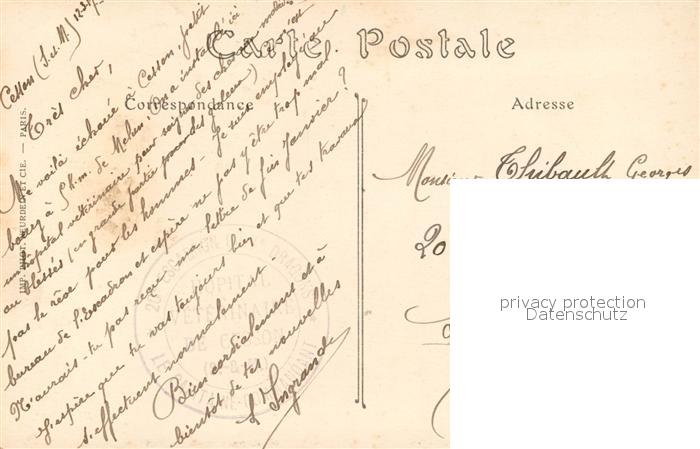 Carte Postale
Correspondance
Adresse
IMP. PHOT. NEURDEIN ET CIE. — PARIS.
Cesson (S.-&-M.)
Très cher,
Me voilà échoué à Cesson, petit
bourg à 8 k.m. de Melun. On a installé ici
un hôpital vétérinaire pour soigner des chevaux malades
ou blessés (en grande partie pour des galeux)
pas le rêve pour les hommes - Je suis employé au
bureau de l'Escadron et espère ne pas y être trop mal.
N'aurais-tu pas reçu ma lettre de fin Janvier?
J'espère que tu vas toujours bien et que tes travaux
s'effectuent normalement.
Bien cordialement et à
bientôt de tes nouvelles
Ingrand
Monsieur Thibault Georges
20
HÔPITAL
VÉTÉRINAIRE
DE CESSON
privacy protection
Datenschutz